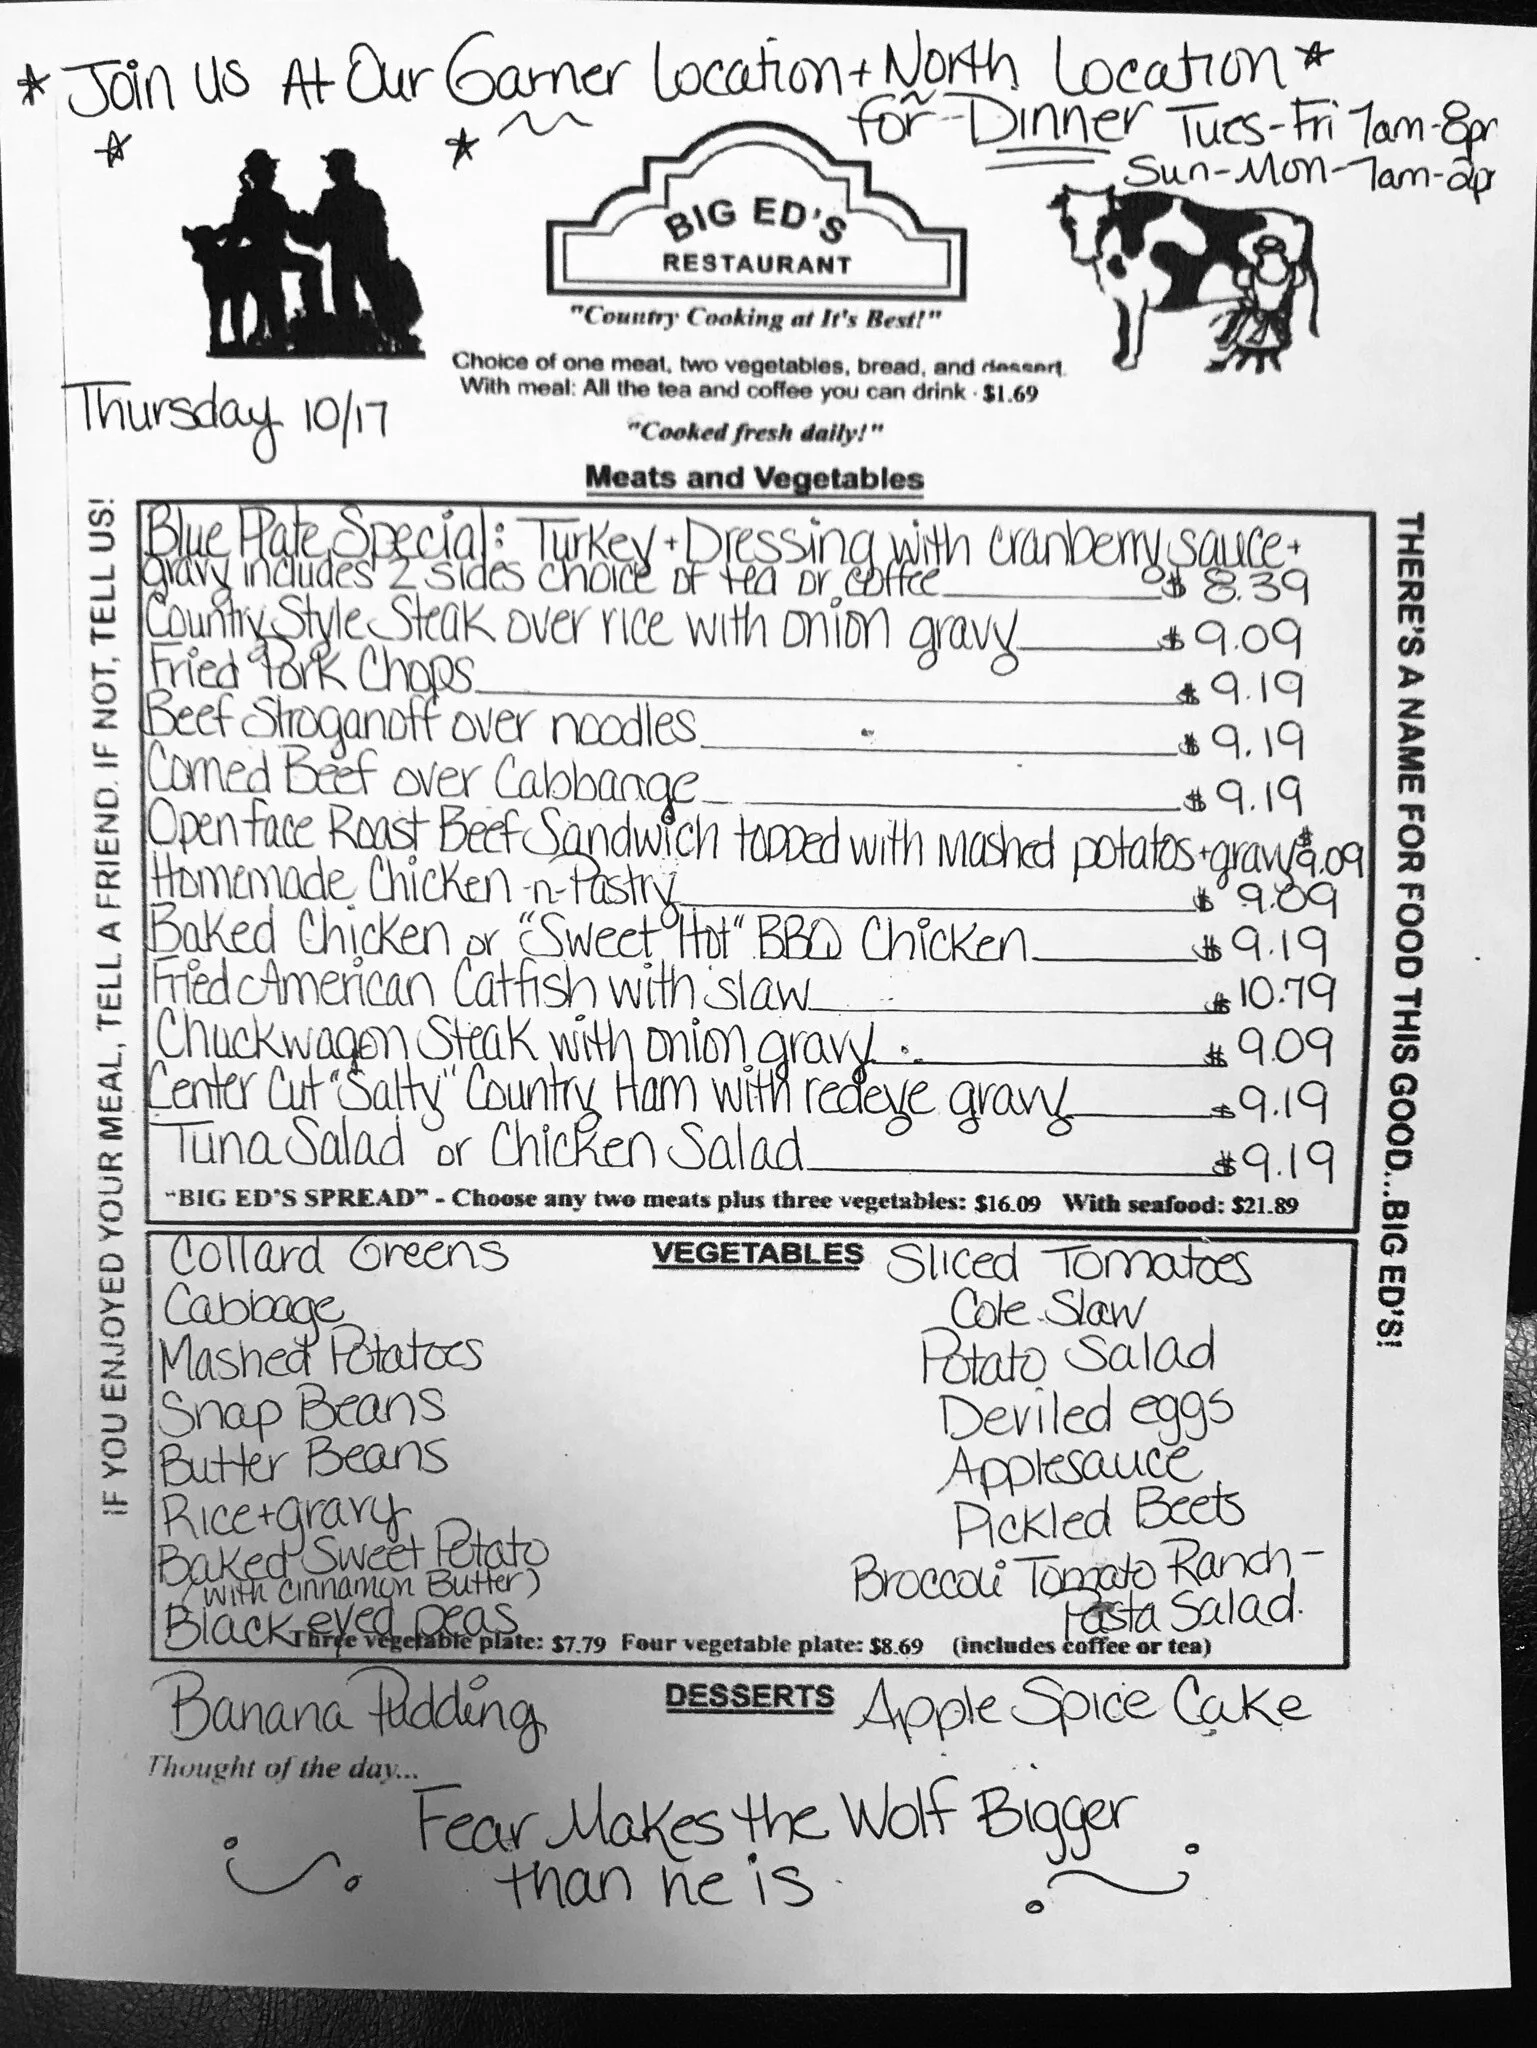 * Join Us At Our Garner Location + North Location *
for Dinner Tues-Fri 7am-8p
Sun-Mon-7am-2p
BIG ED'S
RESTAURANT
"Country Cooking at It's Best!"
Choice of one meat, two vegetables, bread, and dessert.
With meal: All the tea and coffee you can drink - $1.69
Thursday 10/17
"Cooked fresh daily!"
Meats and Vegetables
IF YOU ENJOYED YOUR MEAL, TELL A FRIEND. IF NOT, TELL US!
Blue Plate Special: Turkey + Dressing with cranberry sauce +
gravy includes 2 sides choice of tea or coffee $ 8.39
Country Style Steak over rice with onion gravy $ 9.09
Fried Pork Chops $ 9.19
Beef Stroganoff over noodles $ 9.19
Corned Beef over Cabbange $ 9.19
Open face Roast Beef Sandwich topped with mashed potatos + gravy $9.09
Homemade Chicken -n- Pastry $ 9.09
Baked Chicken or "Sweet Hot" BBQ Chicken $ 9.19
Fried American Catfish with slaw $ 10.79
Chuckwagon Steak with onion gravy $ 9.09
Center Cut "Salty" Country Ham with redeye gravy $ 9.19
Tuna Salad or Chicken Salad $ 9.19
"BIG ED'S SPREAD" - Choose any two meats plus three vegetables: $16.09 With seafood: $21.89
THERE'S A NAME FOR FOOD THIS GOOD...BIG ED'S!
VEGETABLES
Collard Greens
Cabbage
Mashed Potatoes
Snap Beans
Butter Beans
Rice + gravy
Baked Sweet Potato
(with cinnamon Butter)
Black eyed peas
Sliced Tomatoes
Cole Slaw
Potato Salad
Deviled eggs
Applesauce
Pickled Beets
Broccoli Tomato Ranch -
Pasta Salad.
Three vegetable plate: $7.79 Four vegetable plate: $8.69 (includes coffee or tea)
Banana Pudding DESSERTS Apple Spice Cake
Thought of the day...
Fear Makes the Wolf Bigger
than he is